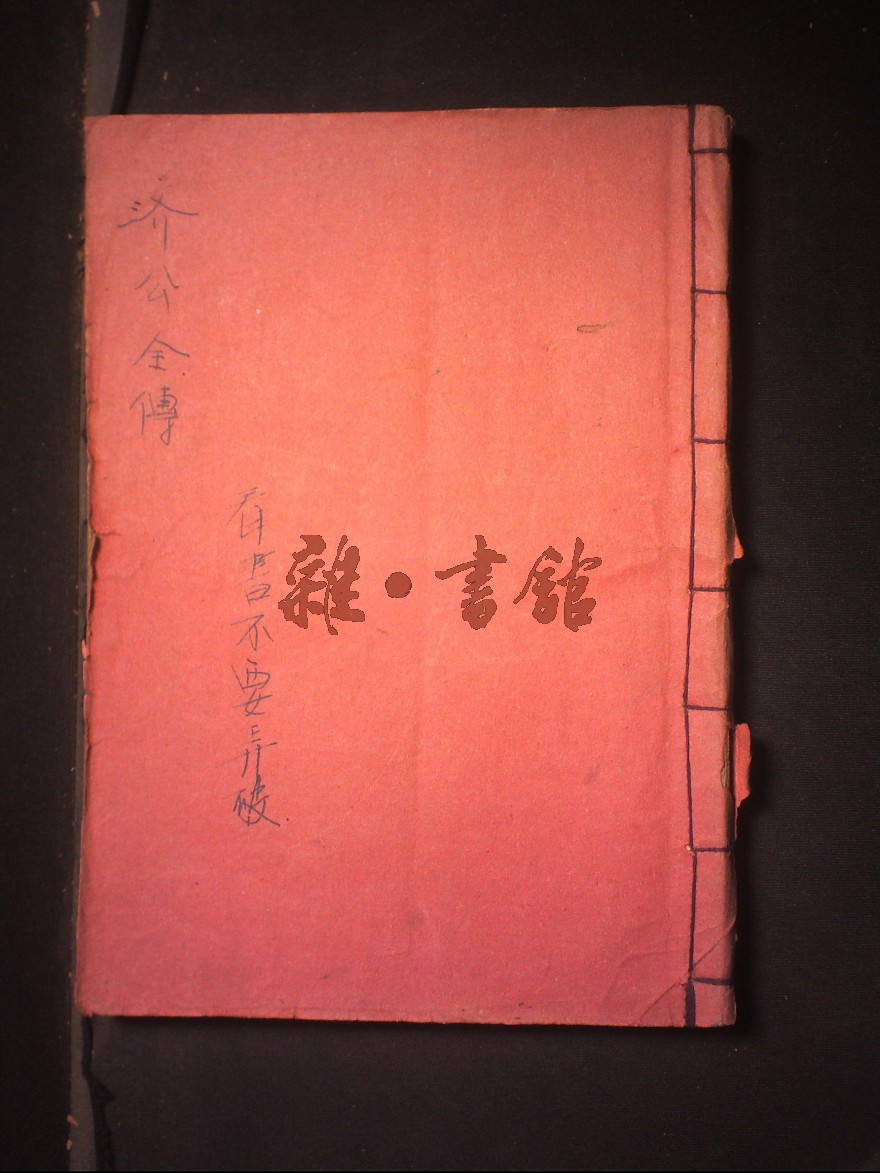 济公全傳
看書不要弄破
雜·書館